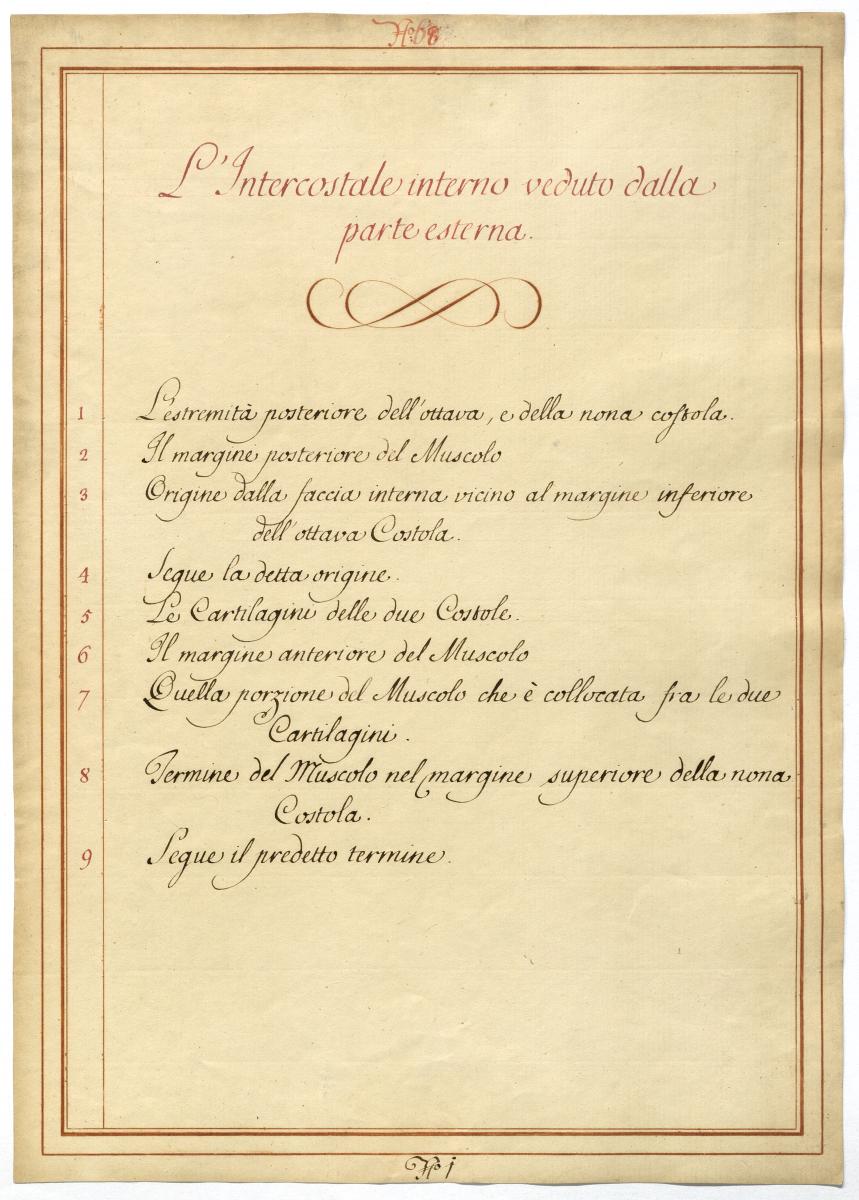 No. 68
L'Intercostale interno veduto dalla
parte esterna.
1 L'estremità posteriore dell'ottava, e della nona costola.
2 Il margine posteriore del Muscolo
3 Origine dalla faccia interna vicino al margine inferiore
dell'ottava Costola.
4 Segue la detta origine.
5 Le Cartilagini delle due Costole.
6 Il margine anteriore del Muscolo
7 Quella porzione del Muscolo che è collocata fra le due
Cartilagini.
8 Termine del Muscolo nel margine superiore della nona
Costola.
9 Segue il predetto termine.
No. 1